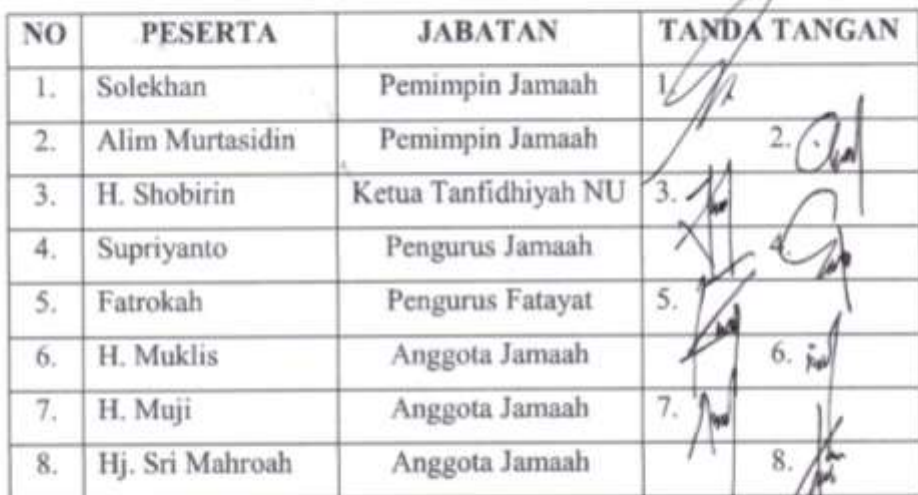 NO PESERTA JABATAN TANDA TANGAN
1. Solekhan Pemimpin Jamaah 1.
2. Alim Murtasidin Pemimpin Jamaah 2.
3. H. Shobirin Ketua Tanfidhiyah NU 3.
4. Supriyanto Pengurus Jamaah 4.
5. Fatrokah Pengurus Fatayat 5.
6. H. Muklis Anggota Jamaah 6.
7. H. Muji Anggota Jamaah 7.
8. Hj. Sri Mahroah Anggota Jamaah 8.